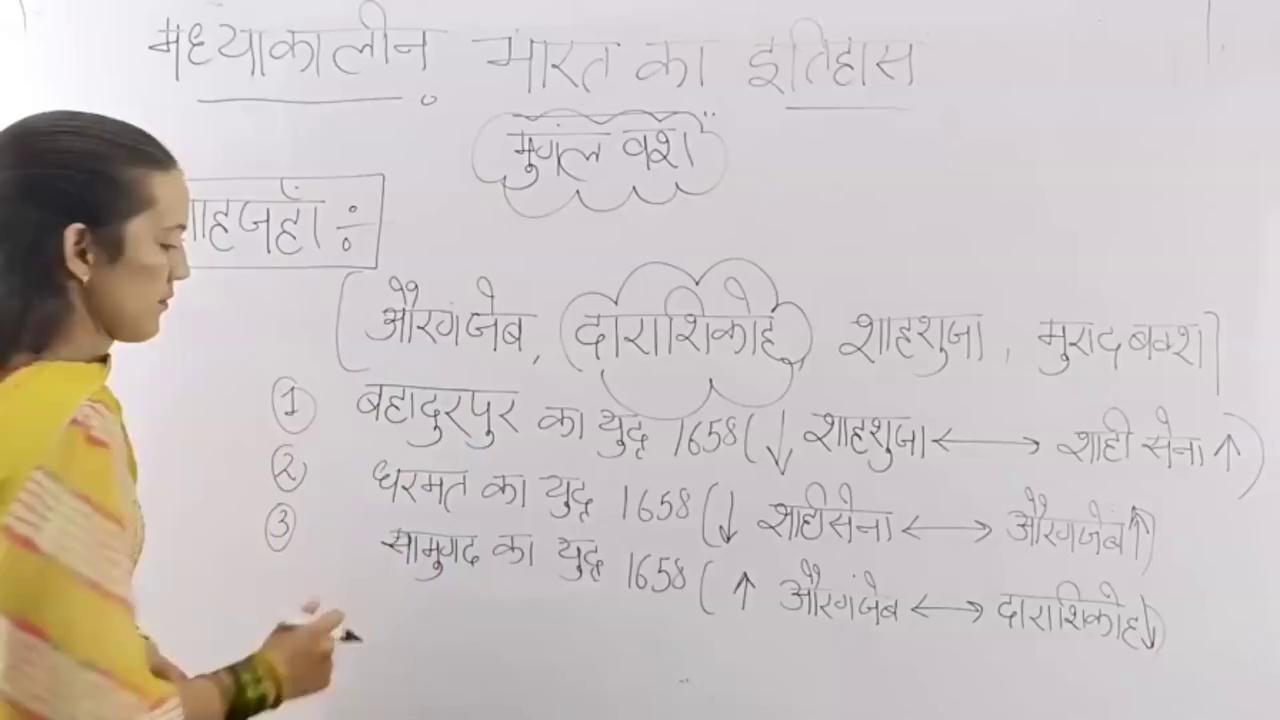 मध्याकालीन भारत का इतिहास
मुगंल वंश
ाहजहाँ ÷
[औरगंजेब, दाराशिकोह, शाहशुजा, मुरादबक्श]
① बहादुरपुर का युद्ध 1658 (↓ शाहशुजा ⟷ शाही सेना ↑)
② धरमत का युद्ध 1658 (↓ शाहीसेना ⟷ औरगंजेब ↑)
③ सामुगढ का युद्ध 1658 (↑ औरगंजेब ⟷ दाराशिकोह ↓)